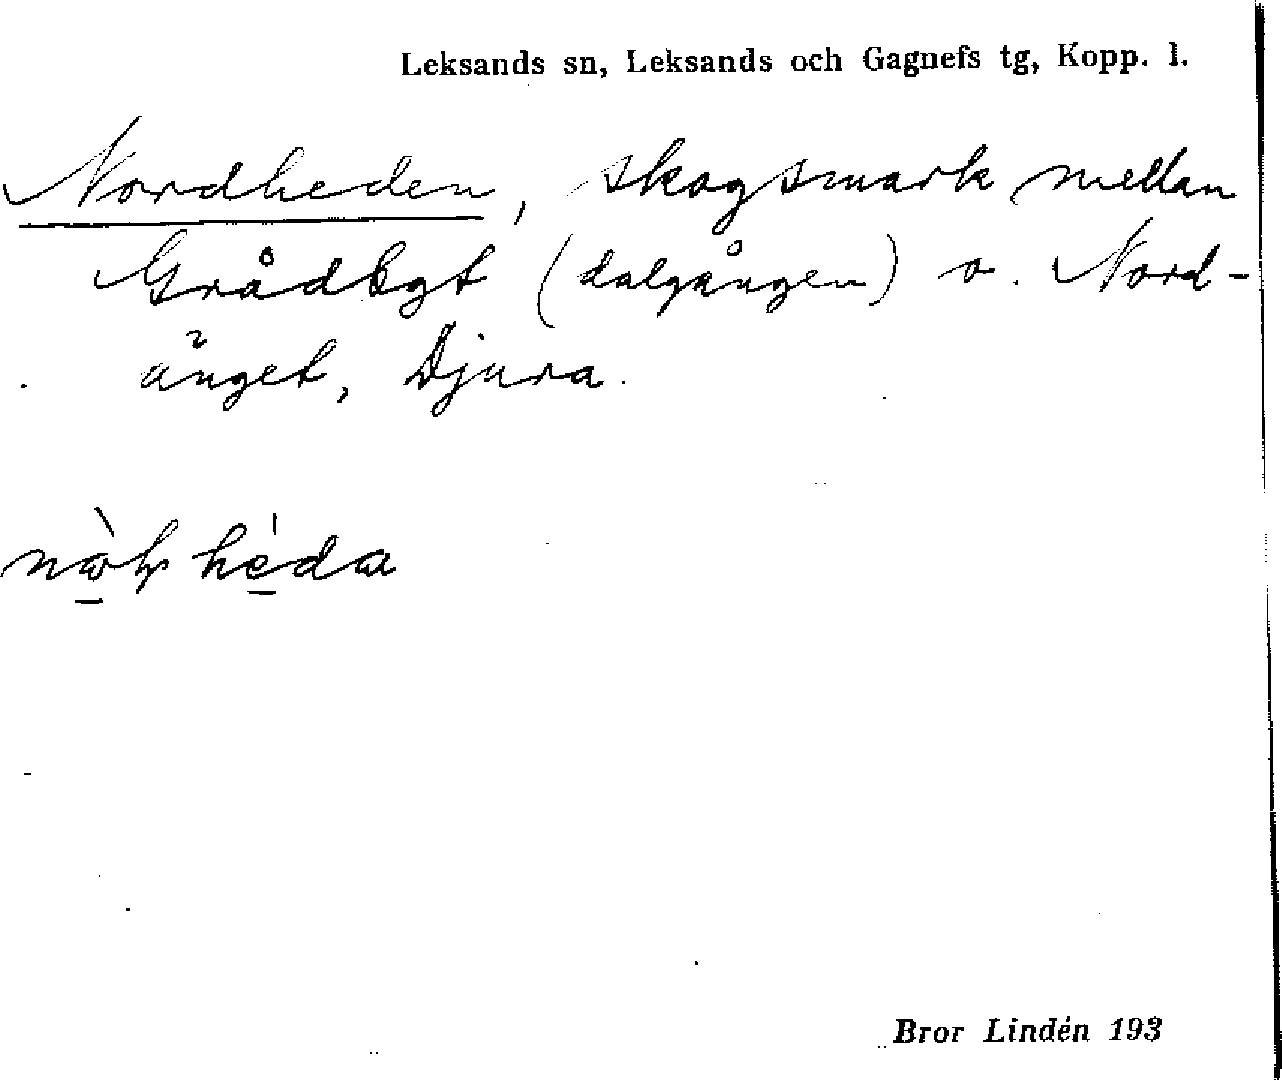 Leksands sn, Leksands och Gagnefs tg, Kopp. l.
Nordheden, skogsmark mellan
(dalgången) o. Nord-
änget, Djura.
Bror Lindén 193